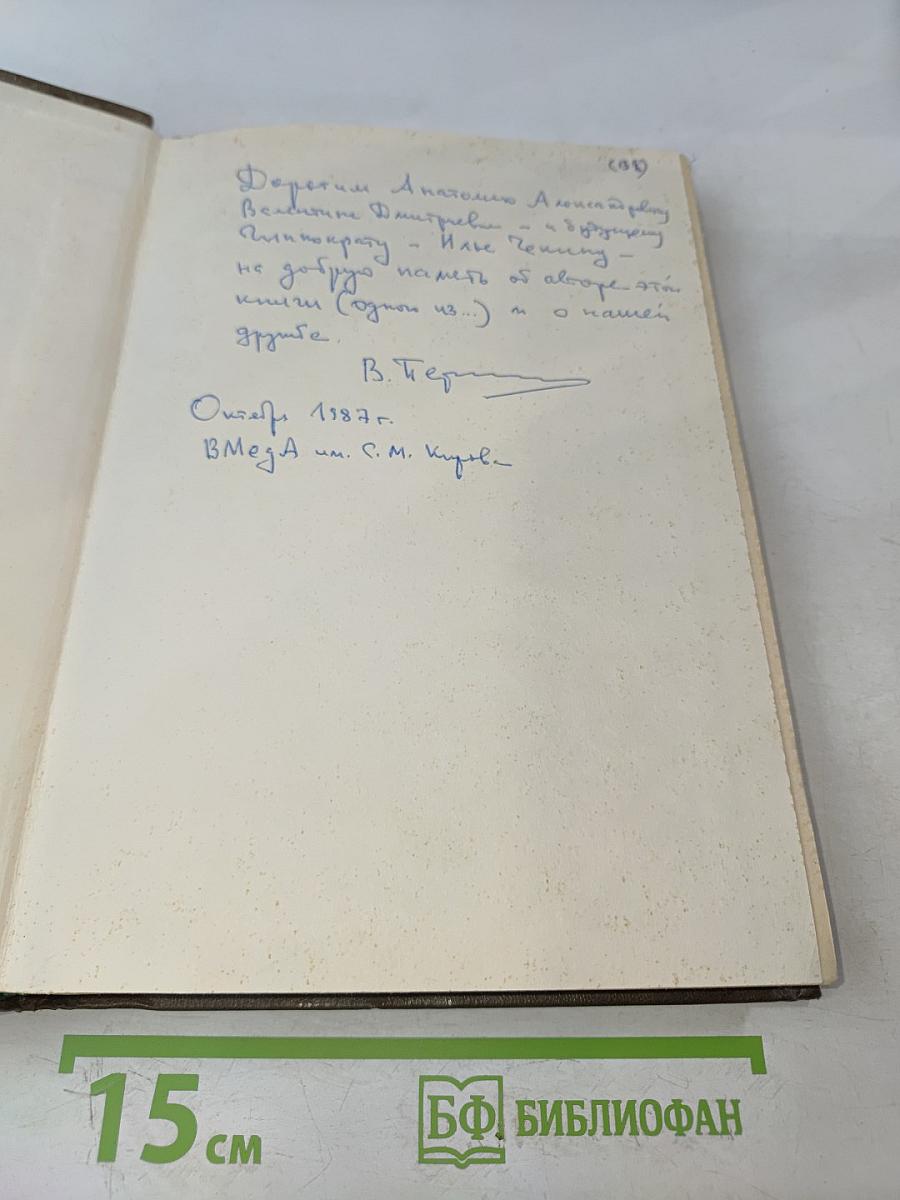 Дорогим Анатолию Александровичу
Валентине Дмитриевне – и будущему
Гиппократу – Илье Чекину –
на добрую память об авторе этой
книги (одном из...) и о нашей
дружбе.
В.
Октябрь 1987 г.
ВМедА им. С. М. Кирова
15 см
БФ БИБЛИОФАН